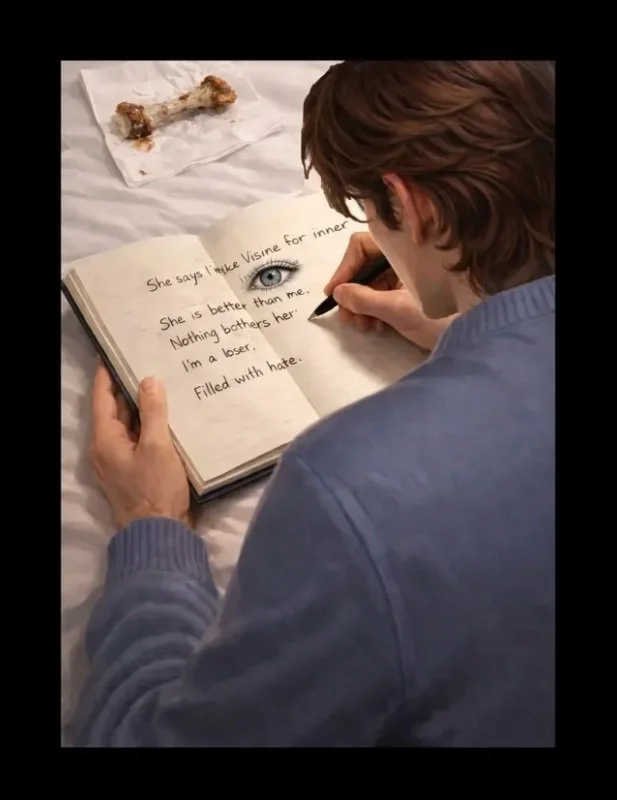 She says Visine for inner
She is better than me.
Nothing bothers her.
I'm a loser.
Filled with hate.